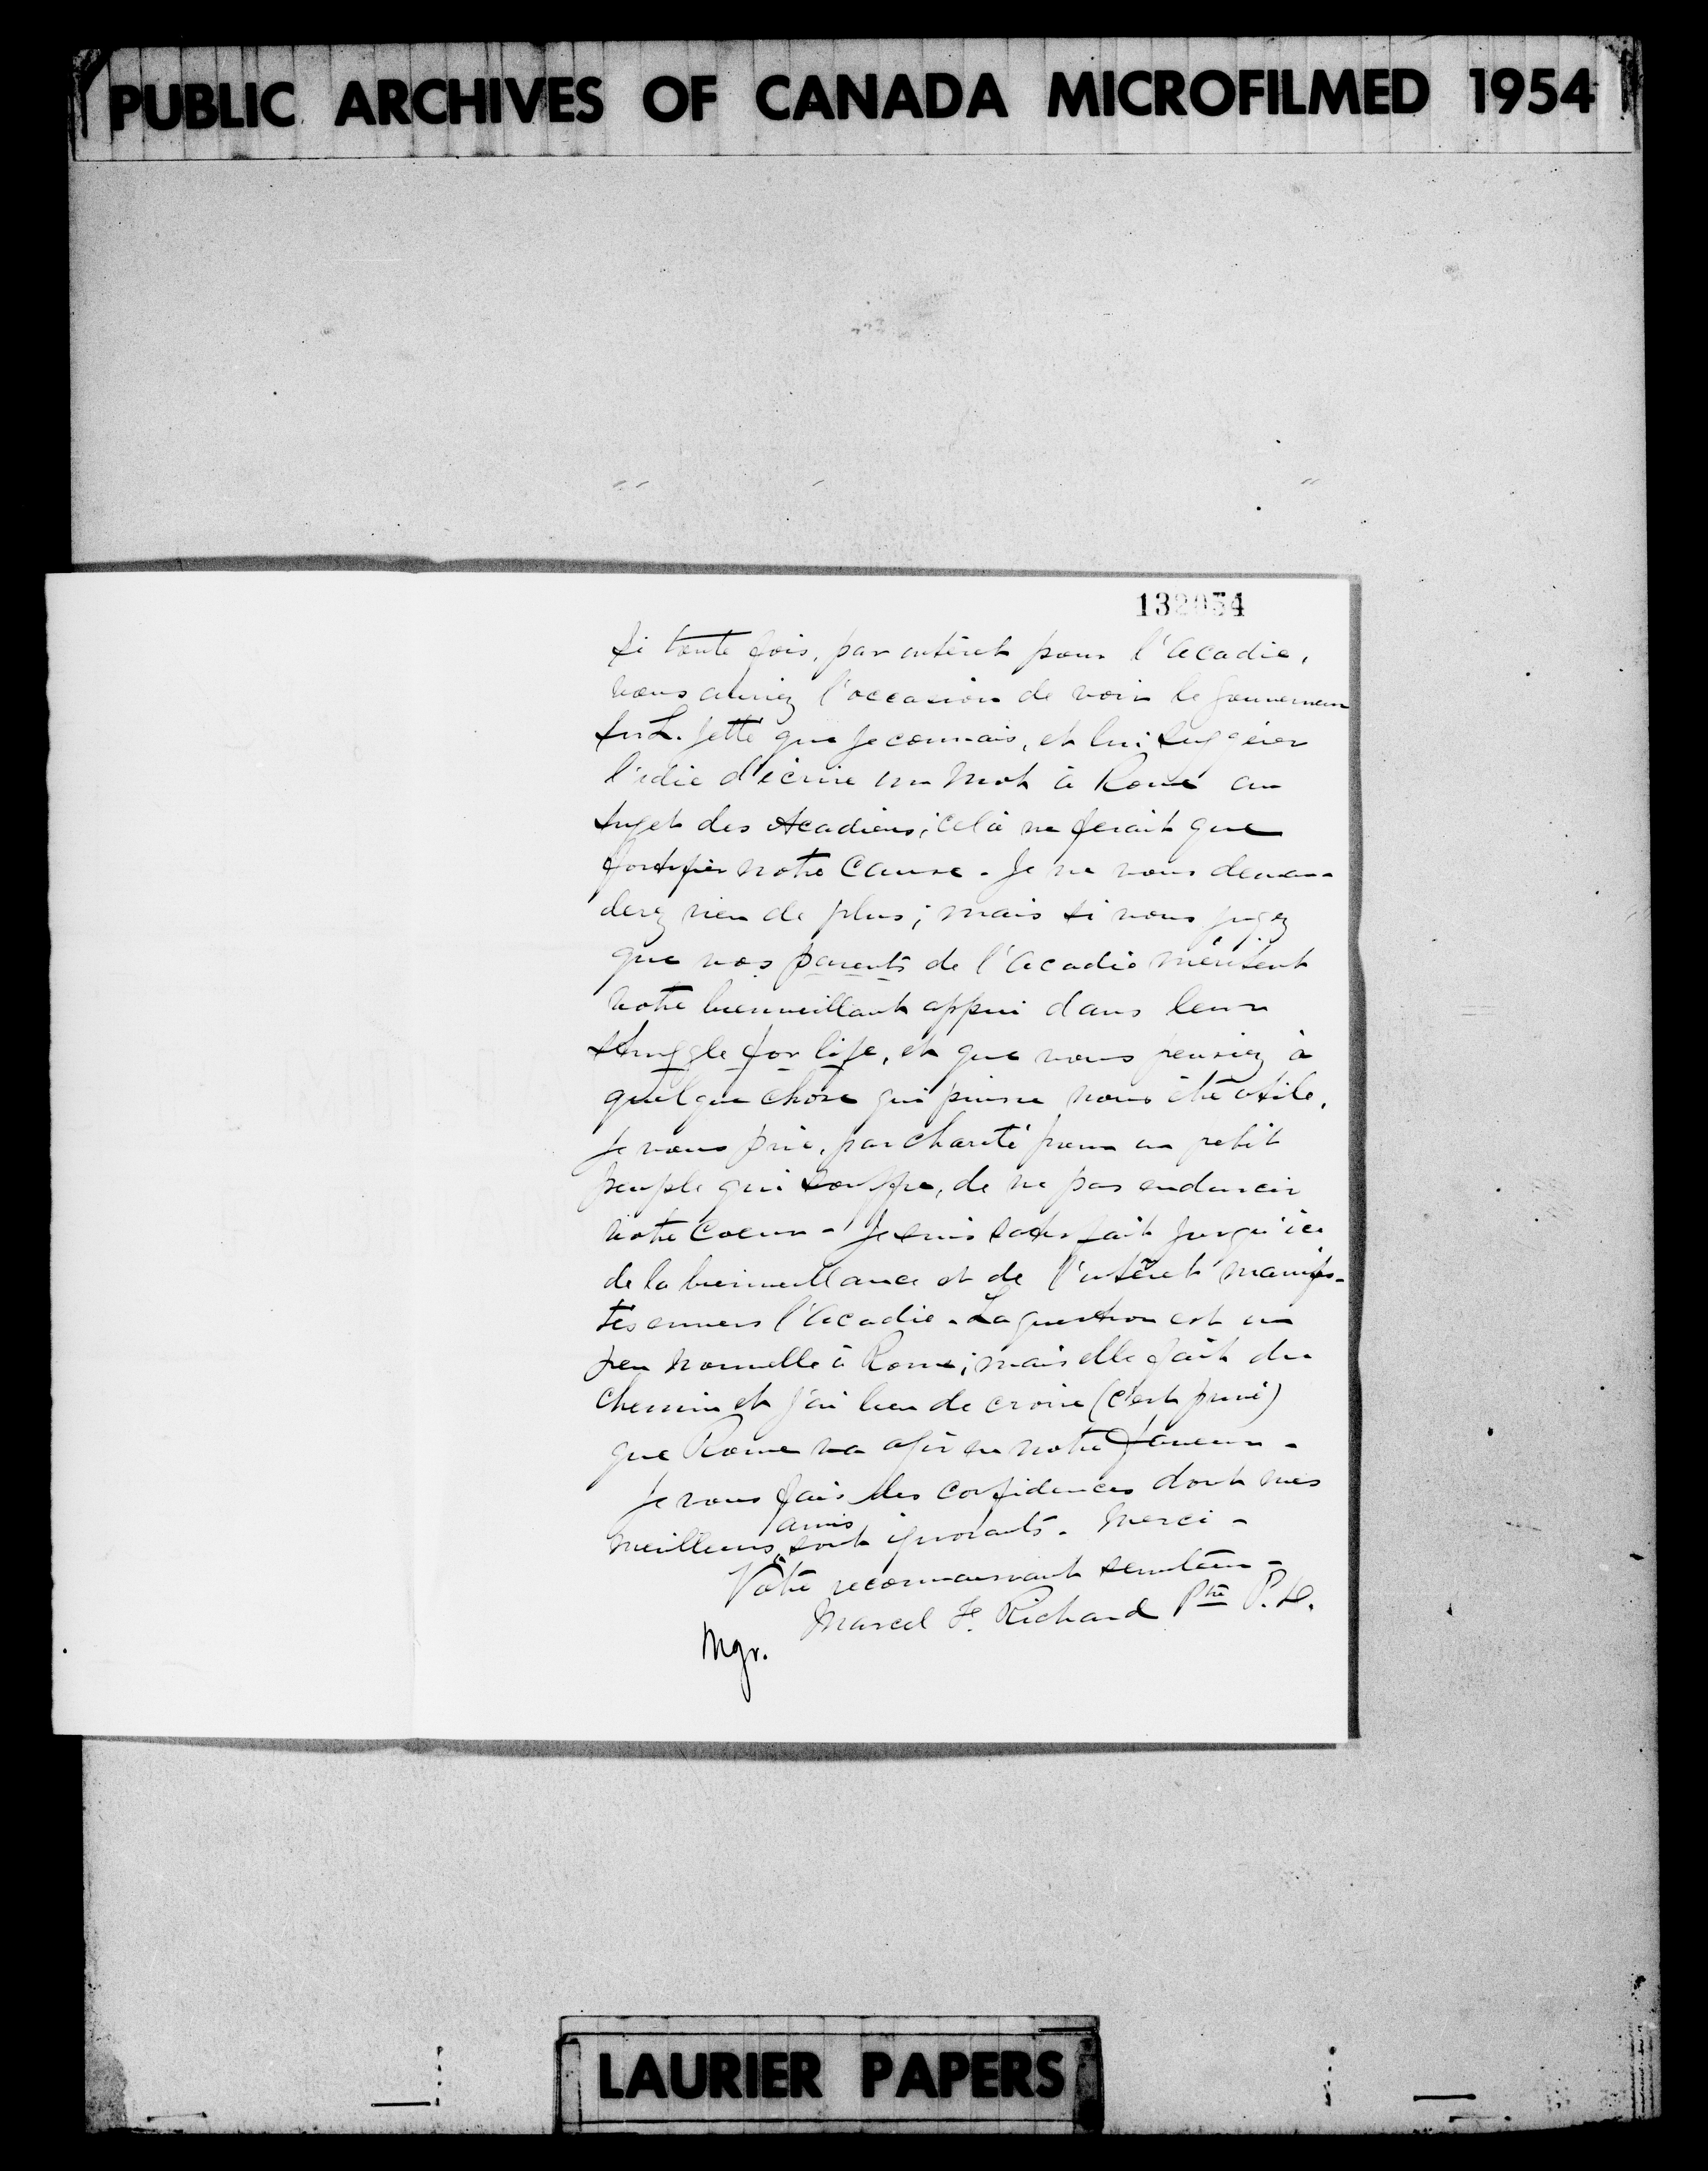 PUBLIC ARCHIVES OF CANADA MICROFILMED 1954
132054
Si toute fois, par intérêt pour l'Acadie,
vous auriez l'occasion de voir le gouverneur
Sir L. Jetté que je connais, et lui suggérer
l'idée d'écrire un mot à Rome au
sujet des Acadiens; celà ne ferait que
fortifier notre Cause. Je ne vous deman-
derez rien de plus; mais si vous jugez
que vos parents de l'Acadie méritent
votre bienveillant appui dans leur
struggle for life, et que vous pensiez à
quelque chose qui puisse nous être utile,
Je vous prie, par charité pour un petit
peuple qui souffre, de ne pas endurcir
votre Coeur - Je suis satisfait jusqu'ici
de la bienveillance et de l'intérêt manifes-
tés envers l'Acadie. La question est un
peu nouvelle à Rome; mais elle fait du
chemin et j'ai lieu de croire (c'est privé)
que Rome va agir en notre faveur -
Je vous fais des confidences dont mes
meilleurs amis sont ignorants. Merci -
Votre reconnaissant serviteur -
Marcel F. Richard Ptre P.D.
Mgr.
LAURIER PAPERS